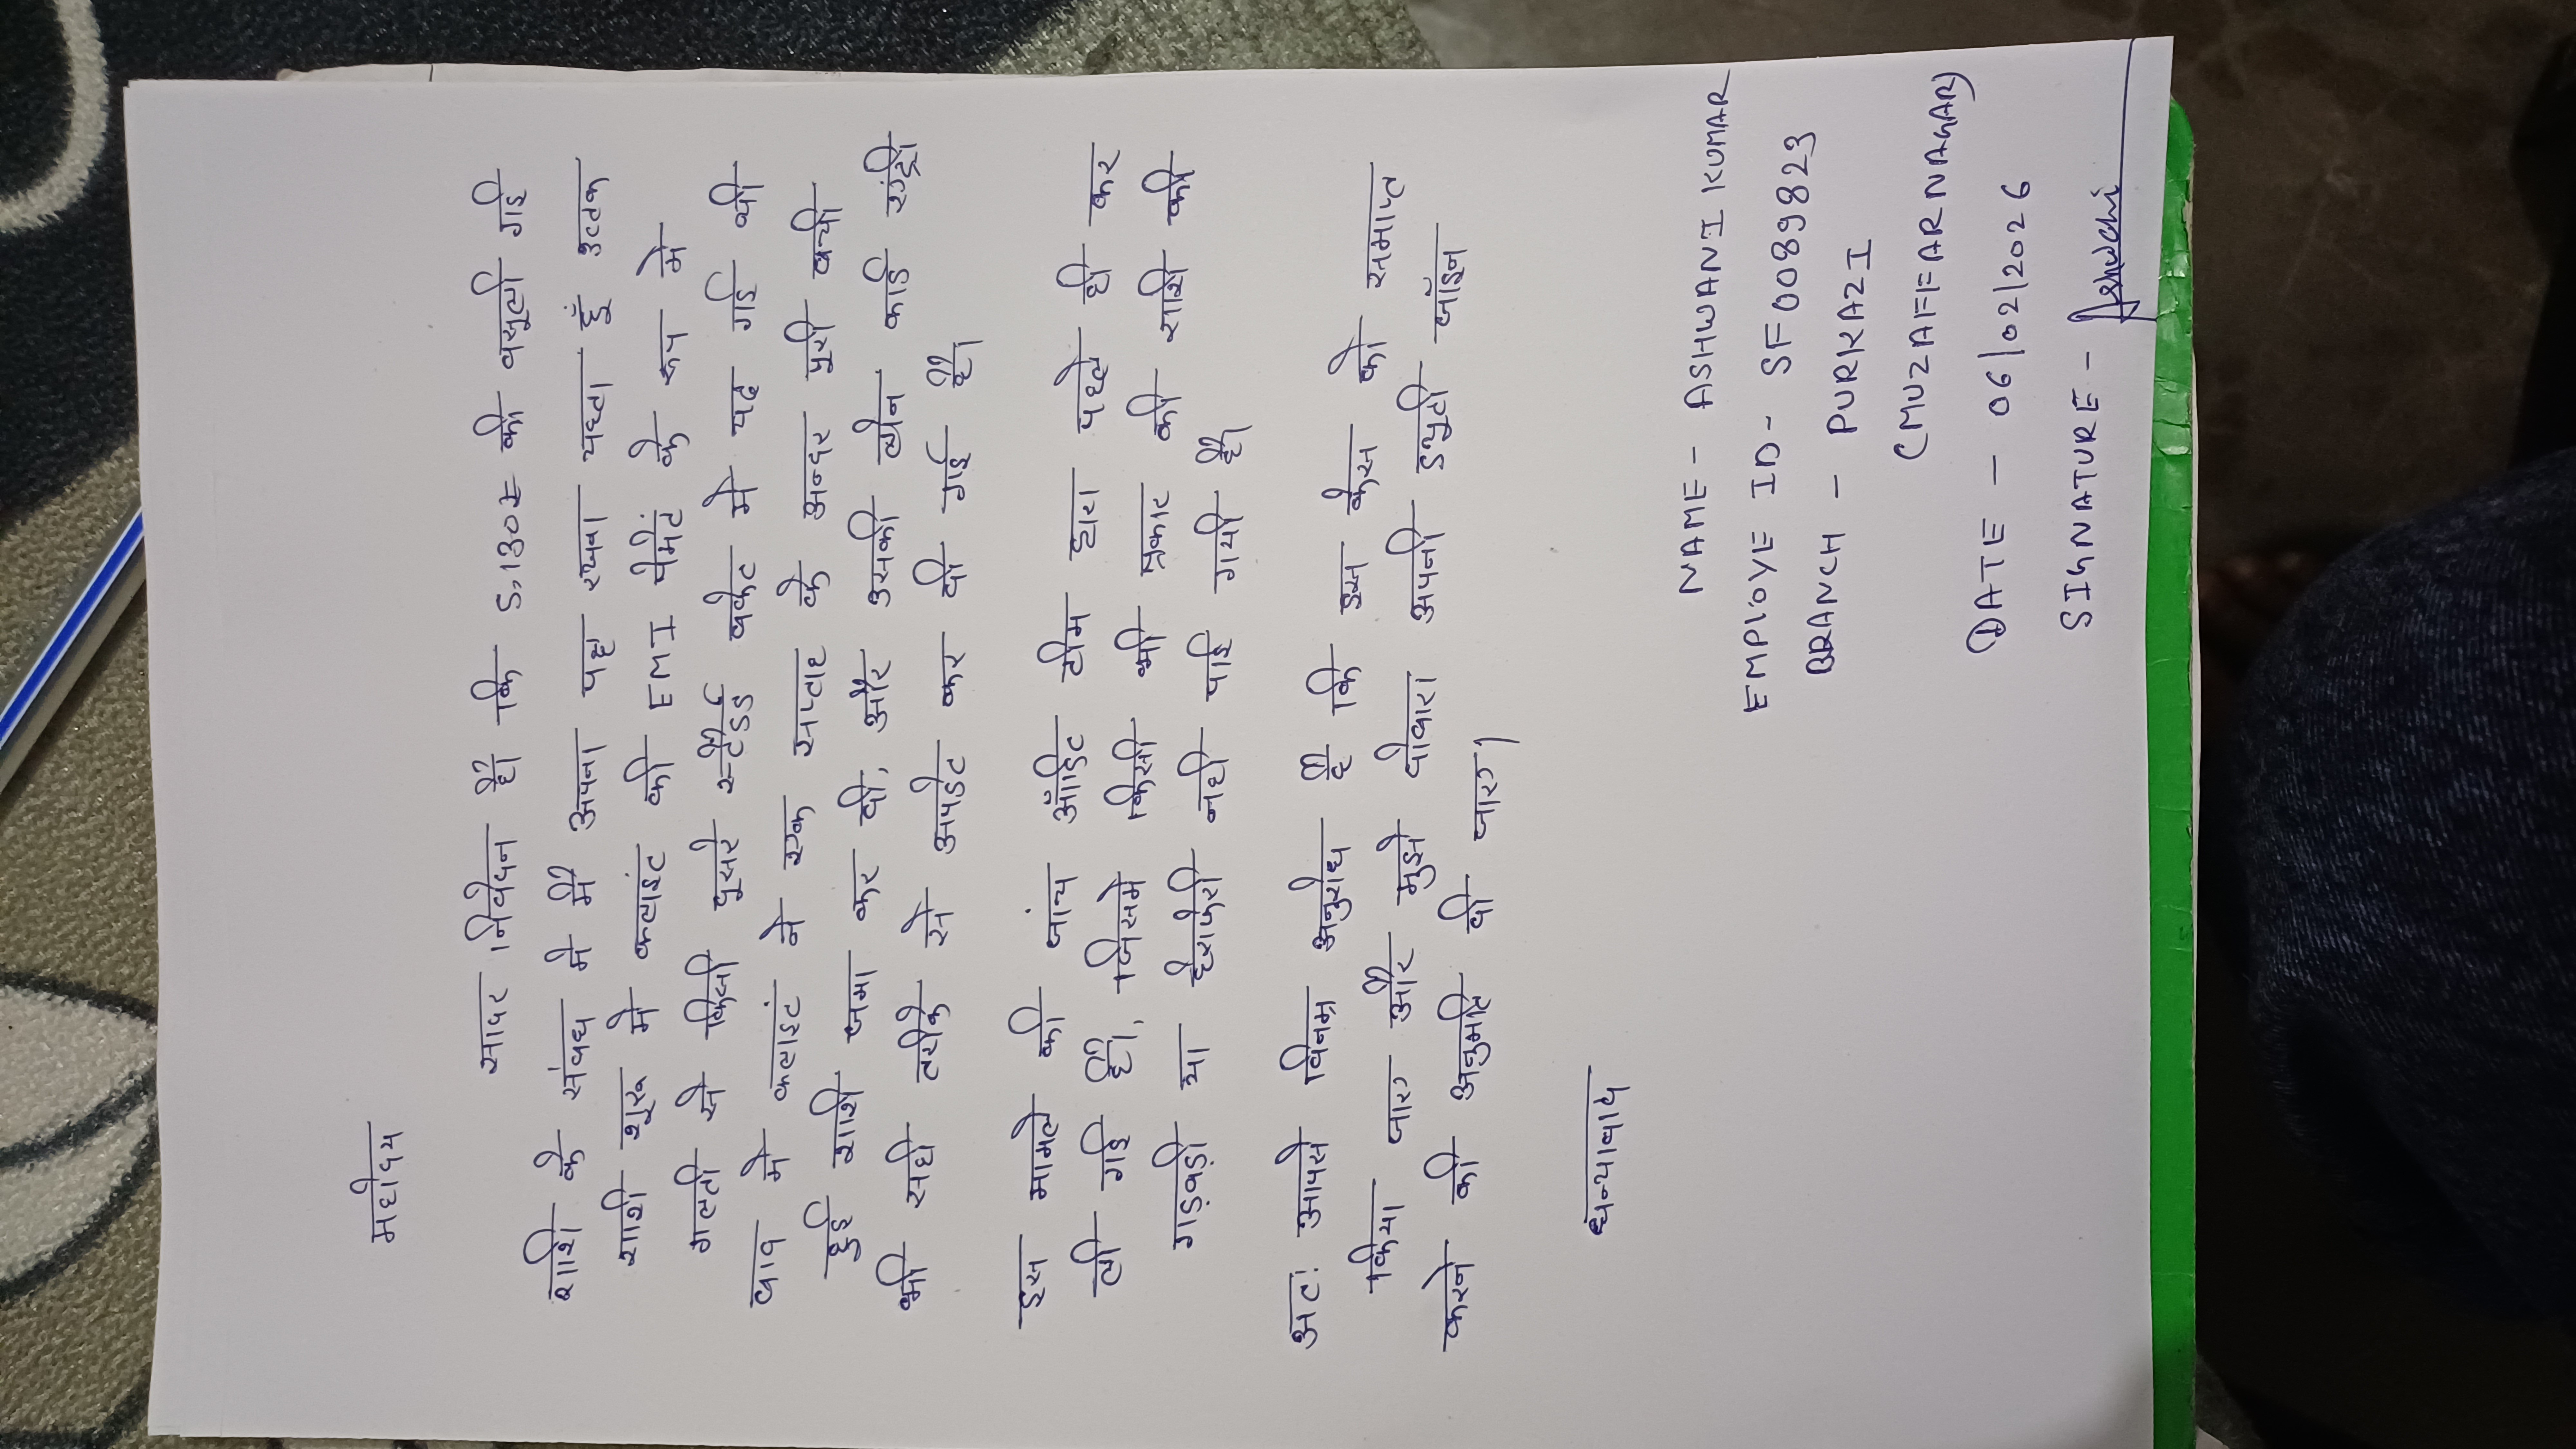 महोदय
सादर निवेदन है। कि 5,130₹ की वसूली गई
राशि के संबध मे मैं अपना पक्ष रखना चाहता हूँ उक्त
राशी शुरू मे क्लाइंट की EMI पेमेंट के रूप मे
गलती से किसी दूसरे स्टैंडर्ड बकेट मे चढ गई थी
बाद मे क्लाइंट ने एक सप्ताह के अन्दर पूरी बची
हुई राशि जमा कर दी, और उसकी लोन कार्ड एंट्री
भी सही तरीके से अपडेट कर दी गई है।
इस मामले की जांच ऑडिट टीम द्वारा पहले ही कर
ली गई है।, जिसमे किसी भी प्रकार की राशि की
गड़बड़ी या हेराफेरी नही पाई गयी है।
अतः आपसे विनम्र अनुरोध है कि इस केस को समाप्त
किया जाए और मुझे दोबारा अपनी ड्युटी जॉइन
करने की अनुमति दी जाए।
धन्यावाद
NAME - ASHWANI KUMAR
EMPlOYE ID - SF0089823
BRANCH - PURKAZI
(MUZAFFARNAGAR)
DATE - 06/02/2026
SIGNATURE - Ashwani